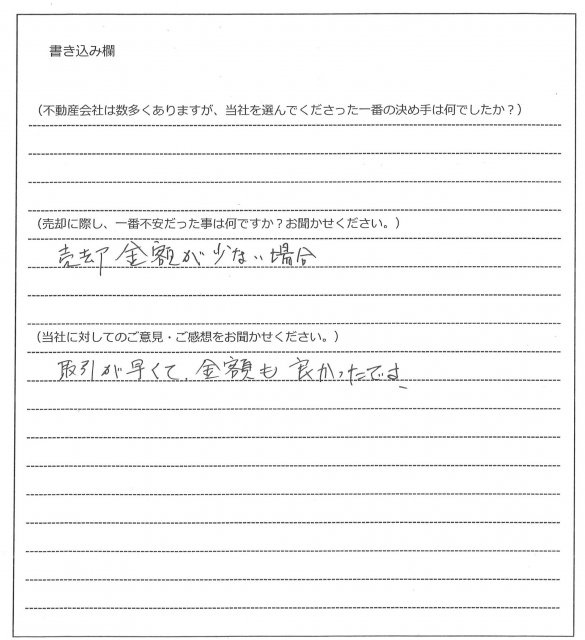 書き込み欄
（不動産会社は数多くありますが、当社を選んでくださった一番の決め手は何でしたか？）
（売却に際し、一番不安だった事は何ですか？お聞かせください。）
売却金額が少ない場合
（当社に対してのご意見・ご感想をお聞かせください。）
取引が早くて、金額も良かったです